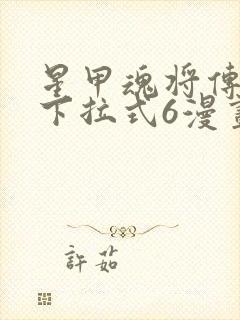 星甲魂将傳
下拉式6漫畫
許茹